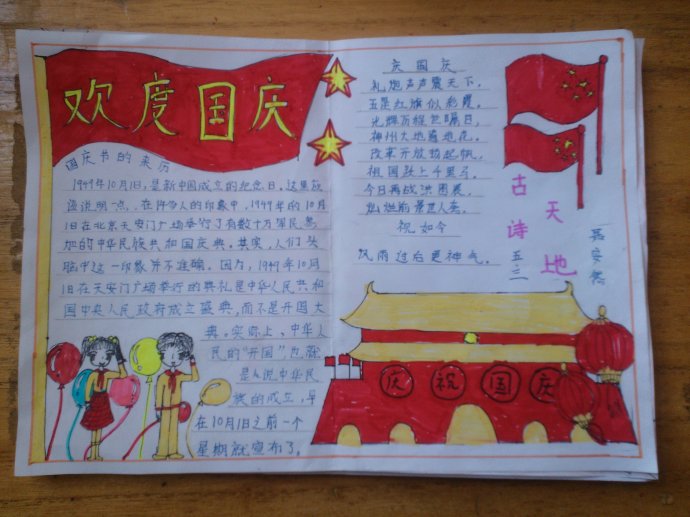 欢度国庆
国庆节的来历
1949年10月1日,是新中国成立的纪念日。这里应
该说明一点,在许多人的印象中,1949年的10月
1日在北京天安门广场举行了有数十万军民参
加的中华民族共和国庆典。其实,人们头
脑中这一印象并不准确。因为,1949年10月
1日在天安门广场举近的典礼是中华人民共和
国中央人民政府成立盛典,而不是开国大
典。实际上,中华人
民的"开国",也就
是说中华民
族的成立,早
在10月1日之前一个
星期就宣布了。
庆国庆
礼炮声声震天下,
五星红旗似彩霞。
光辉历程世瞩日,
神州大地遍地花。
改革开放劲起帆,
祖国跃上千里马。
今日再战洪图展,
灿烂前景世人夸。
祝如今
风雨过后更神气。
古诗
天地
五三
庆祝国庆